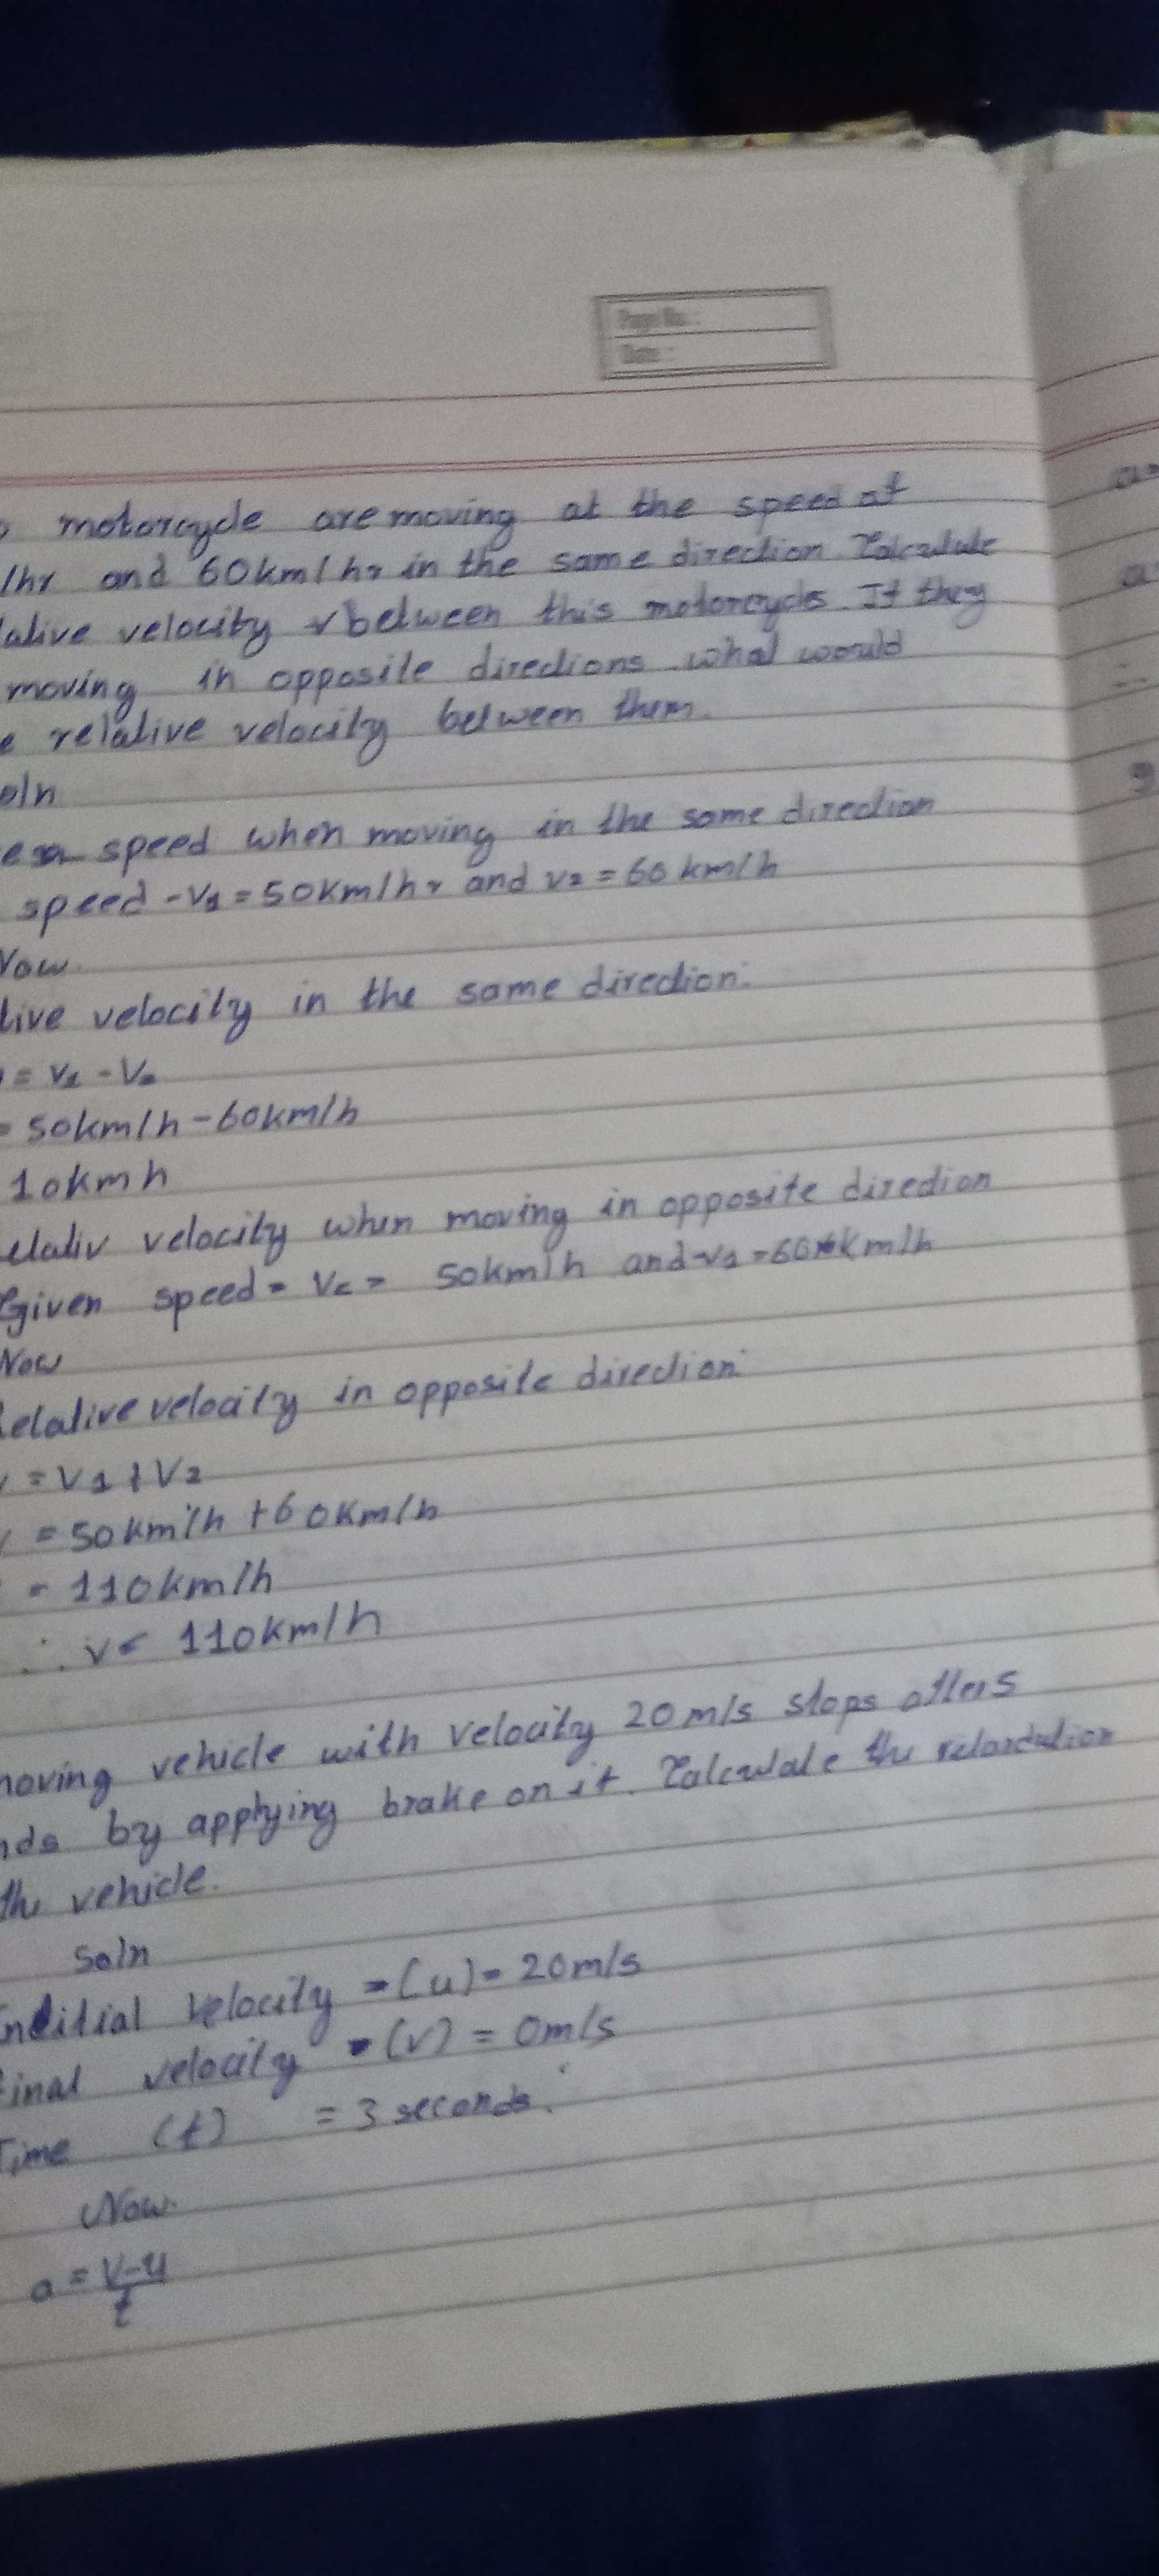 Page No.:
Date:
motorcycle are moving at the speed of
/hr and 60km/hr in the same direction. Calculate
lative velocity between this motorcycles. If they
moving in opposite directions what would
e relative velocity between them.
oln
speed when moving in the same direction
speed - V1 = 50km/hr and v2 = 60 km/h
Now.
tive velocity in the same direction:
= V1 - V2
= 50km/h - 60km/h
10kmh
elativ velocity when moving in opposite direction
given speed = 50km/h and km/h
Now
Relative velocity in opposite direction:
= V1 + V2
= 50km/h + 60km/h
= 110km/h
∴ v = 110km/h
moving vehicle with velocity 20m/s stops
nds by applying brake on it. Calculate the retardation
the vehicle.
Soln
velocity = (u) = 20m/s
Final velocity = (v) = 0m/s
Time (t) = 3 seconds.
Now.
a = v-u
t